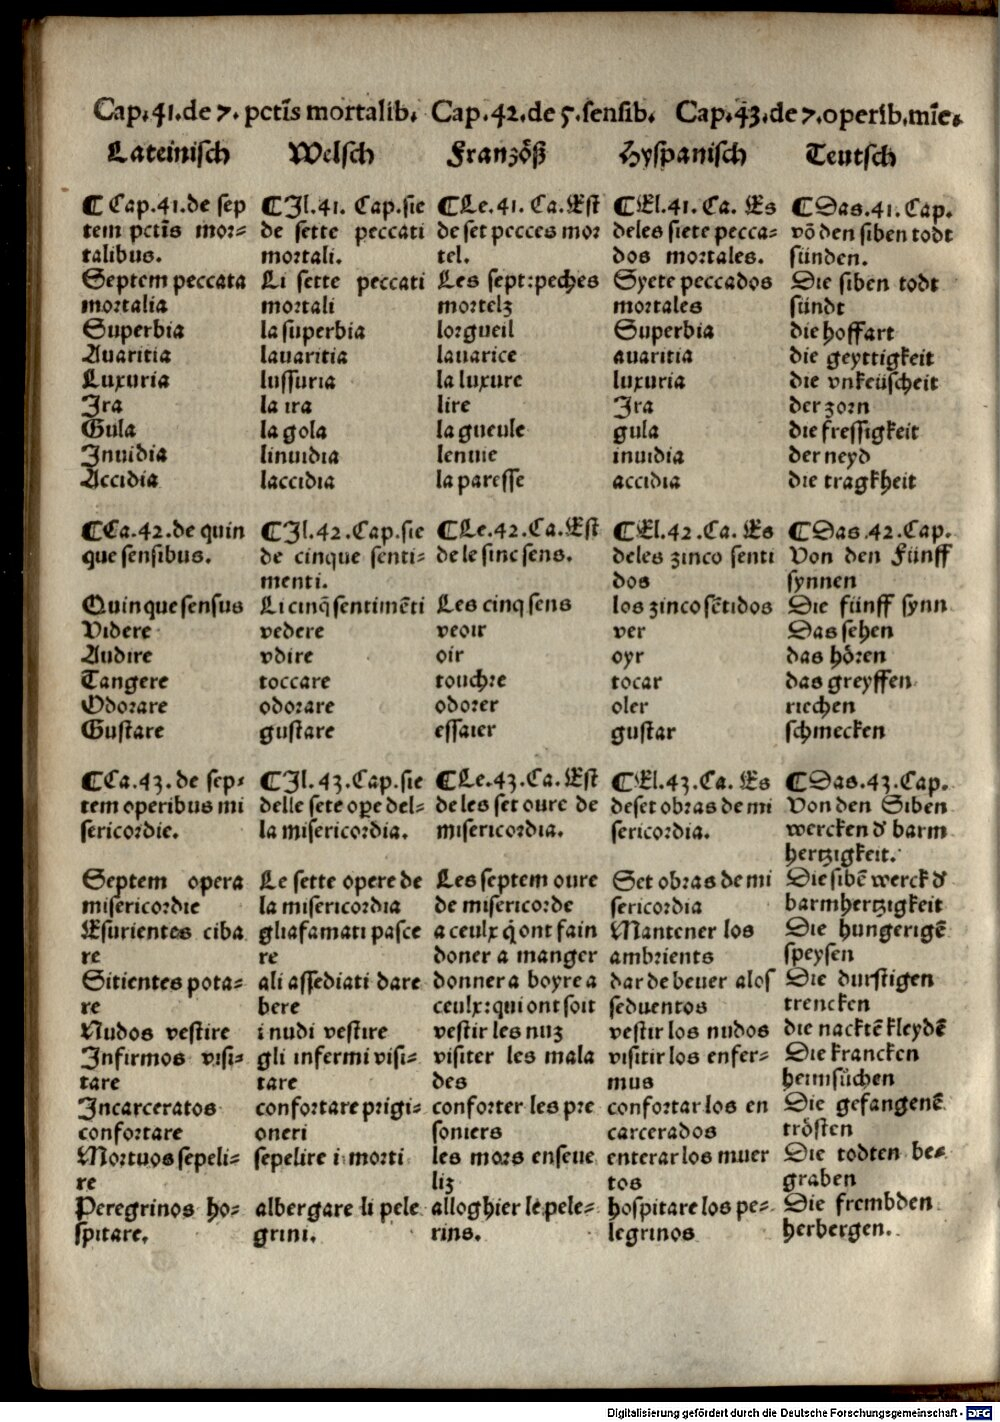 Cap.41.de 7. pctīs mortalib. Cap.42.de 5.sensib. Cap.43.de 7.operib.mīe.
Lateinisch Welsch Franzöß Hyspanisch Teutsch
¶ Cap.41.de sep ¶Il.41. Cap.sie ¶Le.41. Ca.Est ¶El.41.Ca. Es ¶Das.41.Cap.
tem pctīs mor= de sette peccati de set pecces mor deles siete pecca= vō den siben todt
talibus. mortali. tel. dos mortales. sünden.
Septem peccata Li sette peccati Les sept:peches Syete peccados Die siben todt
mortalia mortali mortelz mortales sündt
Superbia la superbia lorgueil Superbia die hoffart
Auaritia lauaritia lauarice auaritia die geyttigkeit
Luxuria lussuria la luxure luxuria die vnkeüscheit
Ira la ira lire Ira der zorn
Gula la gola la gueule gula die fressigkeit
Inuidia linuidia lenuie inuidia der neyd
Accidia laccidia la paresse accidia die tragkheit
¶Ca.42.de quin ¶Il.42.Cap.sie ¶Le.42.Ca.Est ¶El.42.Ca. Es ¶Das.42.Cap.
que sensibus. de cinque senti= de le sinc sens. deles zinco senti Von den Fünff
menti. dos synnen
Quinque sensus Li cinq̄ sentimēti Les cinq sens los zinco sētidos Die fünff synn
Videre vedere veoir ver Das sehen
Audire vdire oir oyr das hören
Tangere toccare touchre tocar das greyffen
Odorare odorare odorer oler riechen
Gustare gustare essaier gustar schmecken
¶Ca.43.de sep= ¶Il.43.Cap.sie ¶Le.43.Ca.Est ¶El.43.Ca. Es ¶Das.43.Cap.
tem operibus mi delle sete ope del= de les set oure de deset obras de mi Von den Siben
sericordie. la misericordia. misericordia. sericordia. wercken d' barm
hertzigkeit.
Septem opera Le sette opere de Les septem oure Set obras de mi Die sibē werck d'
misericordie la misericordia de misericorde sericordia barmhertzigkeit
Esurientes ciba gliafamati pasce a ceulx q̄ ont fain Mantener los Die hungerigē
re re doner a manger ambrients speysen
Sitientes pota= ali assediati dare donner a boyre a dar de beuer alos Die durstigen
re bere ceulx:qui ont soit seduentos trencken
Nudos vestire i nudi vestire vestir les nuz vestir los nudos die nacktē kleydē
Infirmos visi= gli infermi visi= visiter les mala visitir los enfer= Die krancken
tare tare des mus heimsůchen
Incarceratos confortare prigi= conforter les pre confortar los en Die gefangenē
confortare oneri soniers carcerados trösten
Mortuos sepeli= sepelire i morti les mors enseue enterar los muer Die todten be=
re liz tos graben
Peregrinos ho= albergare li pele alloghier le pele= hospitare los pe= Die frembden
spitare. grini. rins. legrinos herbergen.
Digitalisierung gefördert durch die Deutsche Forschungsgemeinschaft - DFG